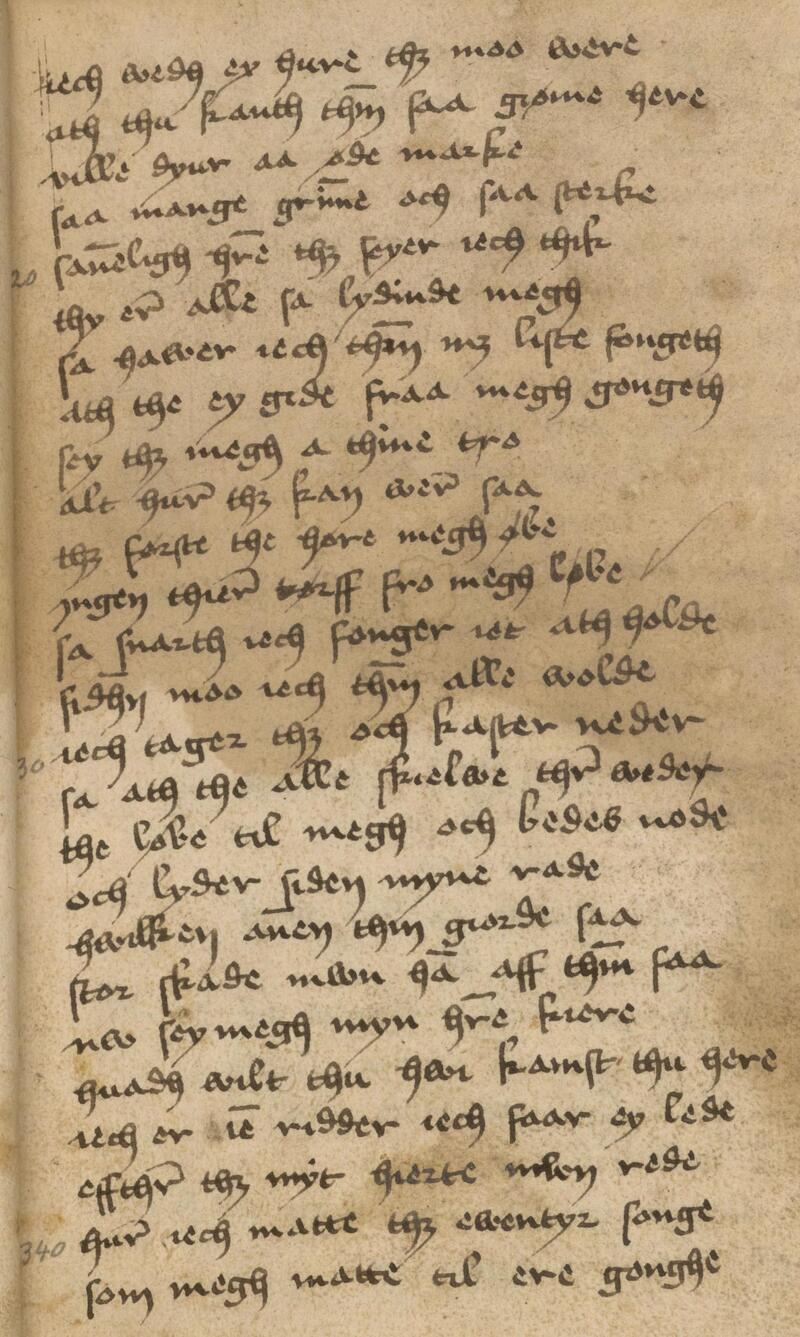 iech wedh ey hure thz moo were
ath thu kanth thm̅ saa grøme here
ville dyur aa øde marke
saa mange grim̅e och saa sterke
20 san̅eligh hr̅e thz seyer iech thik
thy er̅ alle sa lydinde megh
sa hawer iech thm̅ mz liste fongeth
ath the ey gide fraa megh gongeth
sey thz megh a thine tro
alt hur̅ thz kan wer̅ saa
thz første the høre megh øbe
yngen thier̅ tørff fro megh løbe
sa snarth iech fonger iet ath holde
sidhn̅ moo iech thm̅ alle wolde
30 iech tager thz och kaster neder
sa ath the alle skielwe thr̅ weder
the løbe til megh och bedes node
och lyder siden myne rade
hwilken an̅en thm giorde saa
stor skade mwn ha̅ aff thm̅ faa
nw sey megh myn hr̅e kiere
huadh wilt thu hwi kamst thu here
iech er ie̅ ridder iech faar ey lede
effthr̅ thz myt hierte mwn rede
340 hur̅ iech matte thz ewentyr fonge
som megh matte til ere gonghe